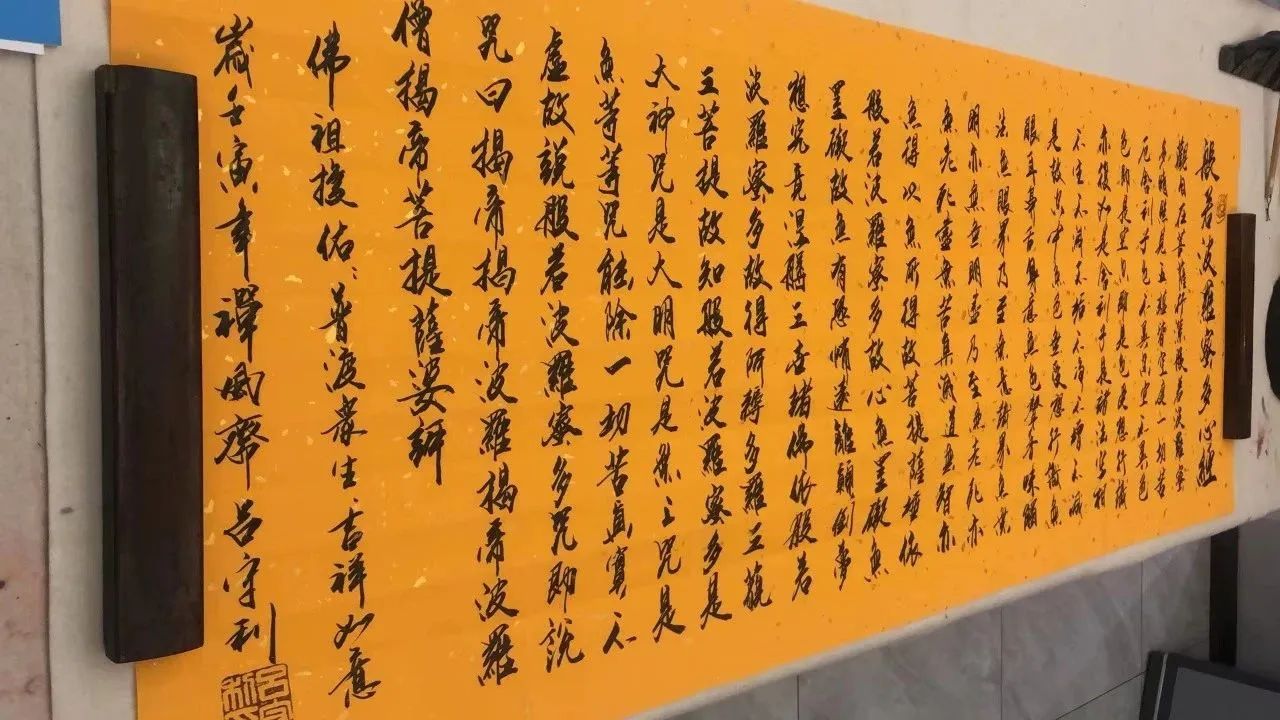 般若波羅蜜多心經
觀自在菩薩行深般若波羅蜜
多時照見五蘊皆空度一切苦
厄舍利子色不異空空不異色
色即是空空即是色受想行識
亦復如是舍利子是諸法空相
不生不滅不垢不淨不增不減
是故空中無色無受想行識無
眼耳鼻舌身意無色聲香味觸
法無眼界乃至無意識界無無
明亦無無明盡乃至無老死亦
無老死盡無苦集滅道無智亦
無得以無所得故菩提薩埵依
般若波羅蜜多故心無罣礙無
罣礙故無有恐怖遠離顛倒夢
想究竟涅槃三世諸佛依般若
波羅蜜多故得阿耨多羅三藐
三菩提故知般若波羅蜜多是
大神咒是大明咒是無上咒是
無等等咒能除一切苦真實不
虛故說般若波羅蜜多咒即說
咒曰揭帝揭帝波羅揭帝波羅
僧揭帝菩提薩婆訶
佛祖護佑、普渡眾生、吉祥如意
歲壬寅年禪風齋呂守利